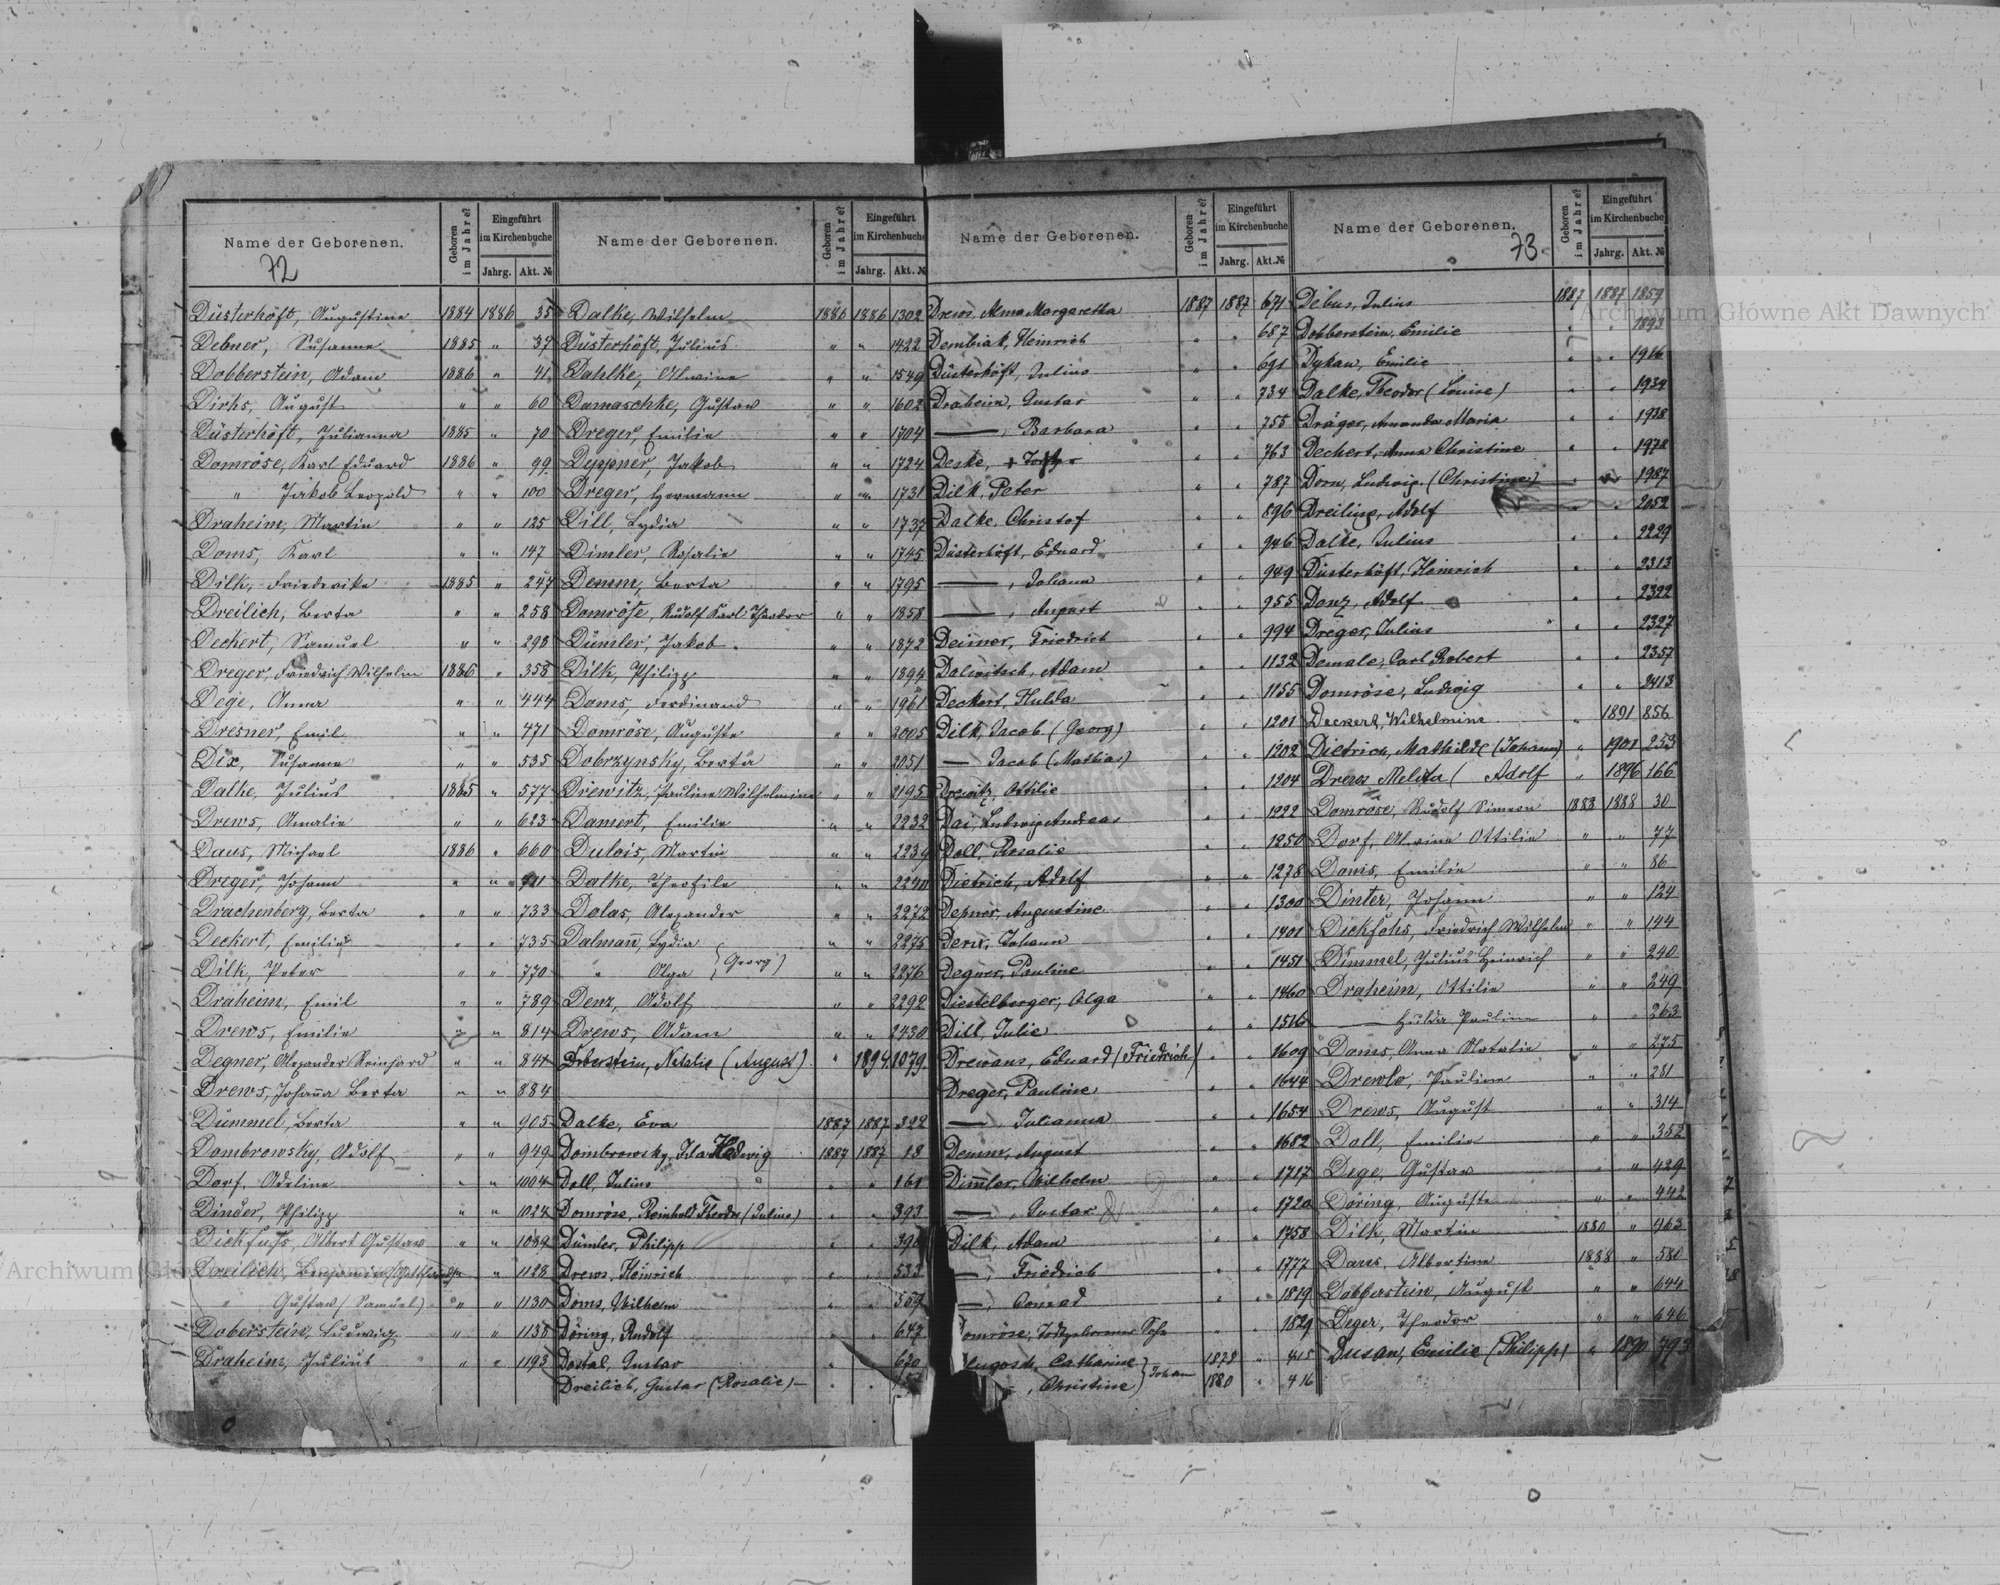 Name der Geborenen.
Geboren im Jahre?
Eingeführt im Kirchenbuche
Jahrg.
Akt. №
72
Düsterhöft, Augustine 1884 1886 35
Debner, Susanne 1885 " 37
Dobberstein, Adam 1886 " 41
Dirks, August " " 60
Düsterhöft, Julianna 1885 " 70
Domröse, Karl Eduard 1886 " 99
" Jakob Leopold " " 100
Draheim, Martin " " 125
Doms, Karl " " 147
Dilk, Friederike 1885 " 247
Dreilich, Berta " " 258
Deckert, Samuel " " 298
Dreger, Friedrich Wilhelm 1886 " 358
Dege, Anna " " 444
Dresner, Emil " " 471
Dix, Susanne " " 535
Dalke, Julius 1885 " 577
Drews, Amalie " " 623
Daus, Michael 1886 " 660
Dreger, Johann " " 711
Drachenberg, Berta " " 733
Deckert, Emilie " " 735
Dilk, Peter " " 770
Draheim, Emil " " 789
Drews, Emilie " " 814
Degner, Alexander Reinhard " " 841
Drews, Johanna Berta " " 884
Dümmel, Berta " " 905
Dombrowsky, Adolf " " 949
Dorf, Adeline " " 1004
Dinder, Philipp " " 1024
Dickfuss, Albert Gustav " " 1084
Dreilich, Benjamin " " 1128
" Gustav (Samuel) " " 1130
Doberstein, Ludwig " " 1158
Draheim, Julius " " 1193
Name der Geborenen.
Geboren im Jahre?
Eingeführt im Kirchenbuche
Jahrg.
Akt. №
Dalke, Wilhelm 1886 1886 1302
Düsterhöft, Julius " " 1422
Dahlke, Alwine " " 1549
Damaschke, Gustav " " 1602
Dreger, Emilie " " 1704
Deppner, Jakob " " 1724
Dreger, Hermann " " 1731
Dill, Lydia " " 1737
Dimler, Rosalie " " 1745
Demm, Berta " " 1795
Domröse, Rudolf Karl Theodor " " 1858
Dümler, Jakob " " 1872
Dilk, Philipp " " 1894
Doms, Ferdinand " " 1961
Domröse, Auguste " " 2005
Dobrzynsky, Berta " " 2051
Drewitz, Pauline Wilhelmine " " 2195
Damert, Emilie " " 2232
Dulois, Martin " " 2239
Dalke, Theofile " " 2240
Dolas, Alexander " " 2272
Dalmañ, Lydia " " 2275
" Olga (Georg) " " 2276
Denz, Adolf " " 2292
Drews, Adam " " 2430
Doberstein, Natalie (August) " 1894 1079
Dalke, Eva 1887 1887 322
Dombrowsky, Ida Hedwig 1887 1887 18
Doll, Julius " " 161
Domröse, Reinhold Theodor (Julius) " " 393
Dümler, Philipp " "
Drews, Heinrich " " 533
Doms, Wilhelm " "
Döring, Rudolf " " 647
Dostal, Gustav " " 670
Dreilich, Gustav (Rosalie) " "
Name der Geborenen.
Geboren im Jahre?
Eingeführt im Kirchenbuche
Jahrg.
Akt. №
Drews, Anna Margaretha 1887 1887 671
Dembiak, Heinrich " " 687
Düsterhöft, Julius " " 691
Draheim, Gustav " " 734
—, Barbara " " 755
Deske, " " 763
Dilk, Peter " " 787
Dalke, Christof " " 896
Düsterhöft, Eduard " " 946
—, Johann " " 949
—, August " " 955
Deimer, Friedrich " " 994
Dalwitsch, Adam " " 1132
Deckert, Hulda " " 1155
Dilk, Jacob (Georg) " " 1201
— Jacob (Mathias) " " 1202
Drewitz, Ottilie " " 1204
Dai, Ludwig Andreas " " 1222
Doll, Rosalie " " 1250
Dietrich, Adolf " " 1278
Depner, Augustine " " 1300
Derw, Johann " " 1401
Degner, Pauline " " 1451
Diestelberger, Olga " " 1460
Dill, Julie " " 1516
Drewans, Eduard (Friedrich) " " 1609
Dreger, Pauline " " 1644
—, Julianna " " 1654
Demm, August " " 1682
Dimler, Wilhelm " " 1717
—, Gustav " " 1720
Dilk, Adam " " 1758
—, Friedrich " " 1777
—, Conrad " " 1819
Domröse, Todtgeborener Sohn " " 1829
Dlugosch, Catharine 1878 " 415
—, Christine } Johann 1880 " 416
Name der Geborenen.
Geboren im Jahre?
Eingeführt im Kirchenbuche
Jahrg.
Akt. №
73
Debus, Julius 1887 1887 1859
Dobberstein, Emilie " " 1893
Dykau, Emilie " " 1916
Dalke, Theodor (Louise) " " 1934
Dräger, Amanda Maria " " 1938
Dechert, Anna Christine " " 1978
Dorn, Ludwig (Christine) " " 1987
Dreiling, Adolf " " 2052
Dalke, Julius " " 2229
Düsterhöft, Heinrich " " 2313
Donz, Adolf " " 2322
Dreger, Julius " " 2327
Demale, Carl Robert " " 2357
Domröse, Ludwig " " 2413
Deckert, Wilhelmine " 1891 856
Dietrich, Mathilde (Johann) " 1901 253
Drews Melita (Adolf " 1896 166
Domröse, Rudolf Simeon 1883 1888 30
Dorf, Alwine Ottilie " " 77
Doms, Emilie " " 86
Dinter, Johann " " 124
Dickföhs, Friedrich Wilhelm " " 144
Dimmel, Julius Heinrich " " 240
Draheim, Ottilie " " 249
— Hulda Pauline " " 263
Doms, Anna Natalie " " 275
Drewlo, Pauline " " 281
Drews, August " " 314
Doll, Emilie " " 352
Dege, Gustav " " 429
Döring, Auguste " " 442
Dilk, Martin 1880 " 463
Daus, Albertine 1888 " 580
Dobberstein, August " " 644
Deger, Theodor " " 646
Dusan, Emilie (Philipp) " 1890 793
Archiwum Główne Akt Dawnych